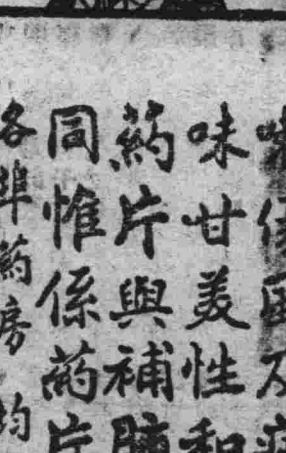 味甘美性和
药片與補肺
同惟係药片
各埠药房均